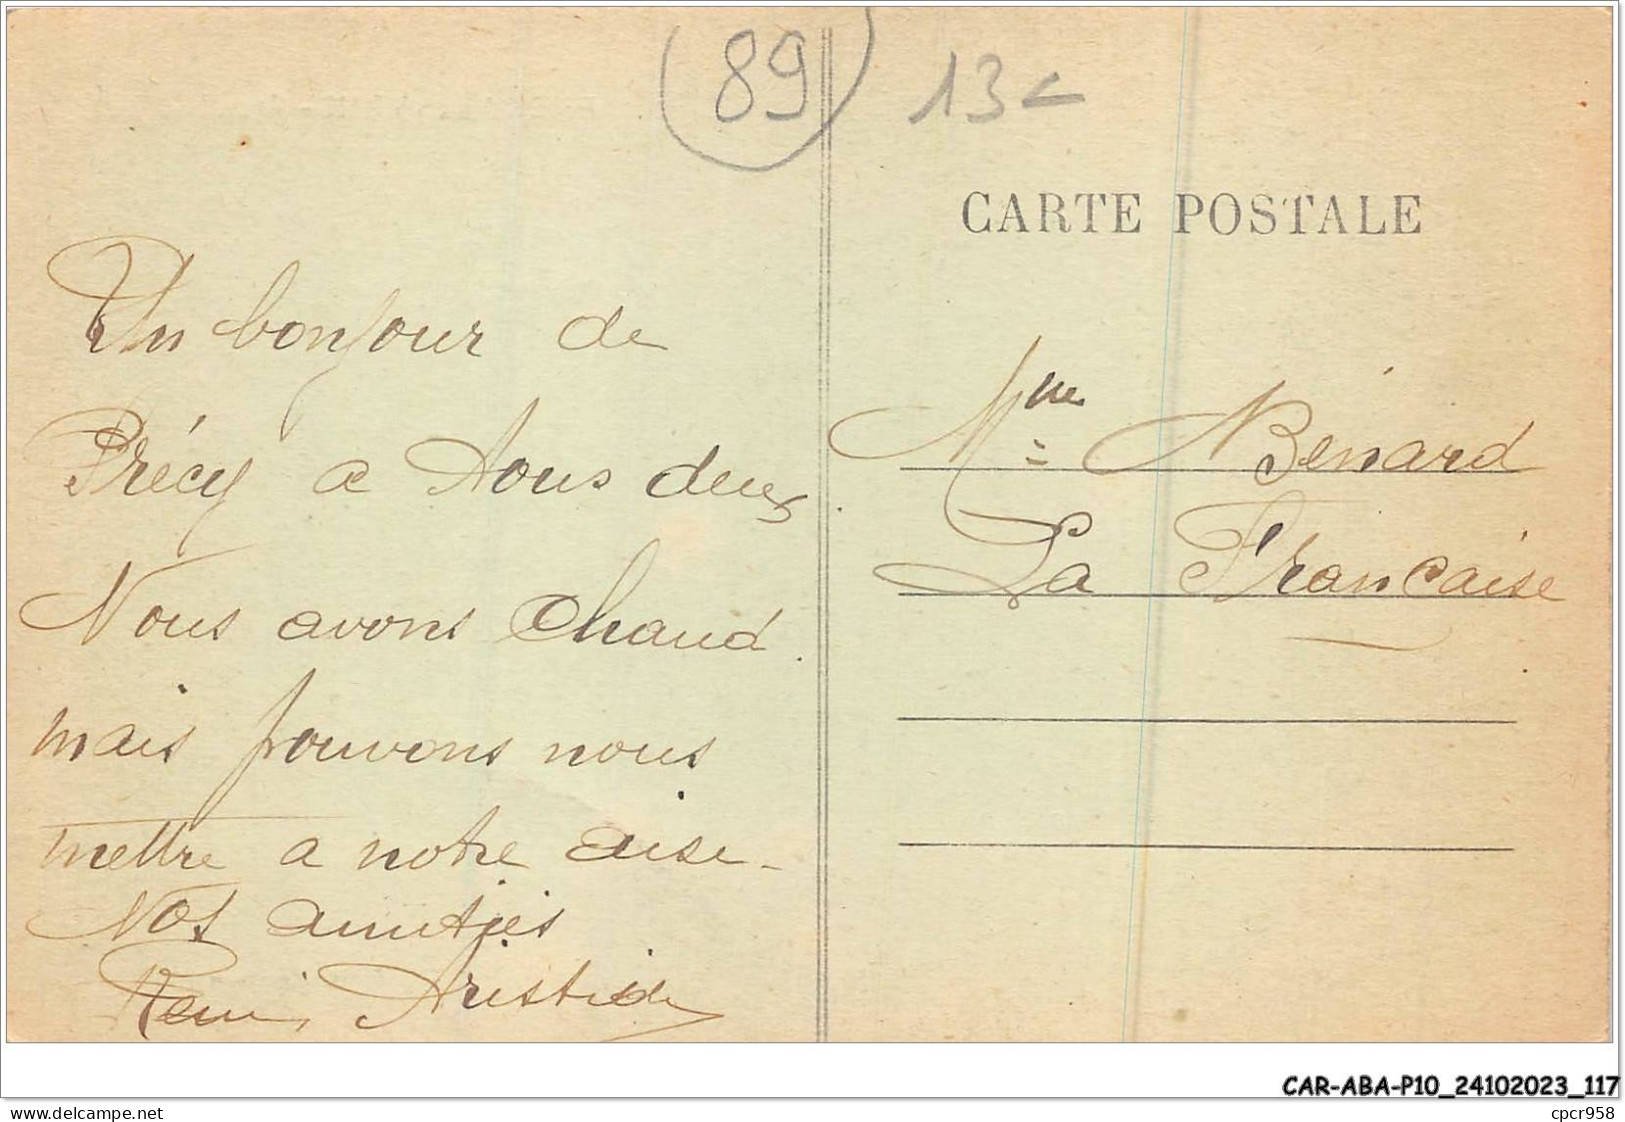 89
13
CARTE POSTALE
Un bonjour de
Précy a vous deux
Nous avons chaud.
mais pouvons nous
mettre a notre aise -
Nos amitiés
Remi, Aristide
Mme Bénard
La Francaise
CAR-ABA-P10_24102023_117
www.delcampe.net
cpcr958